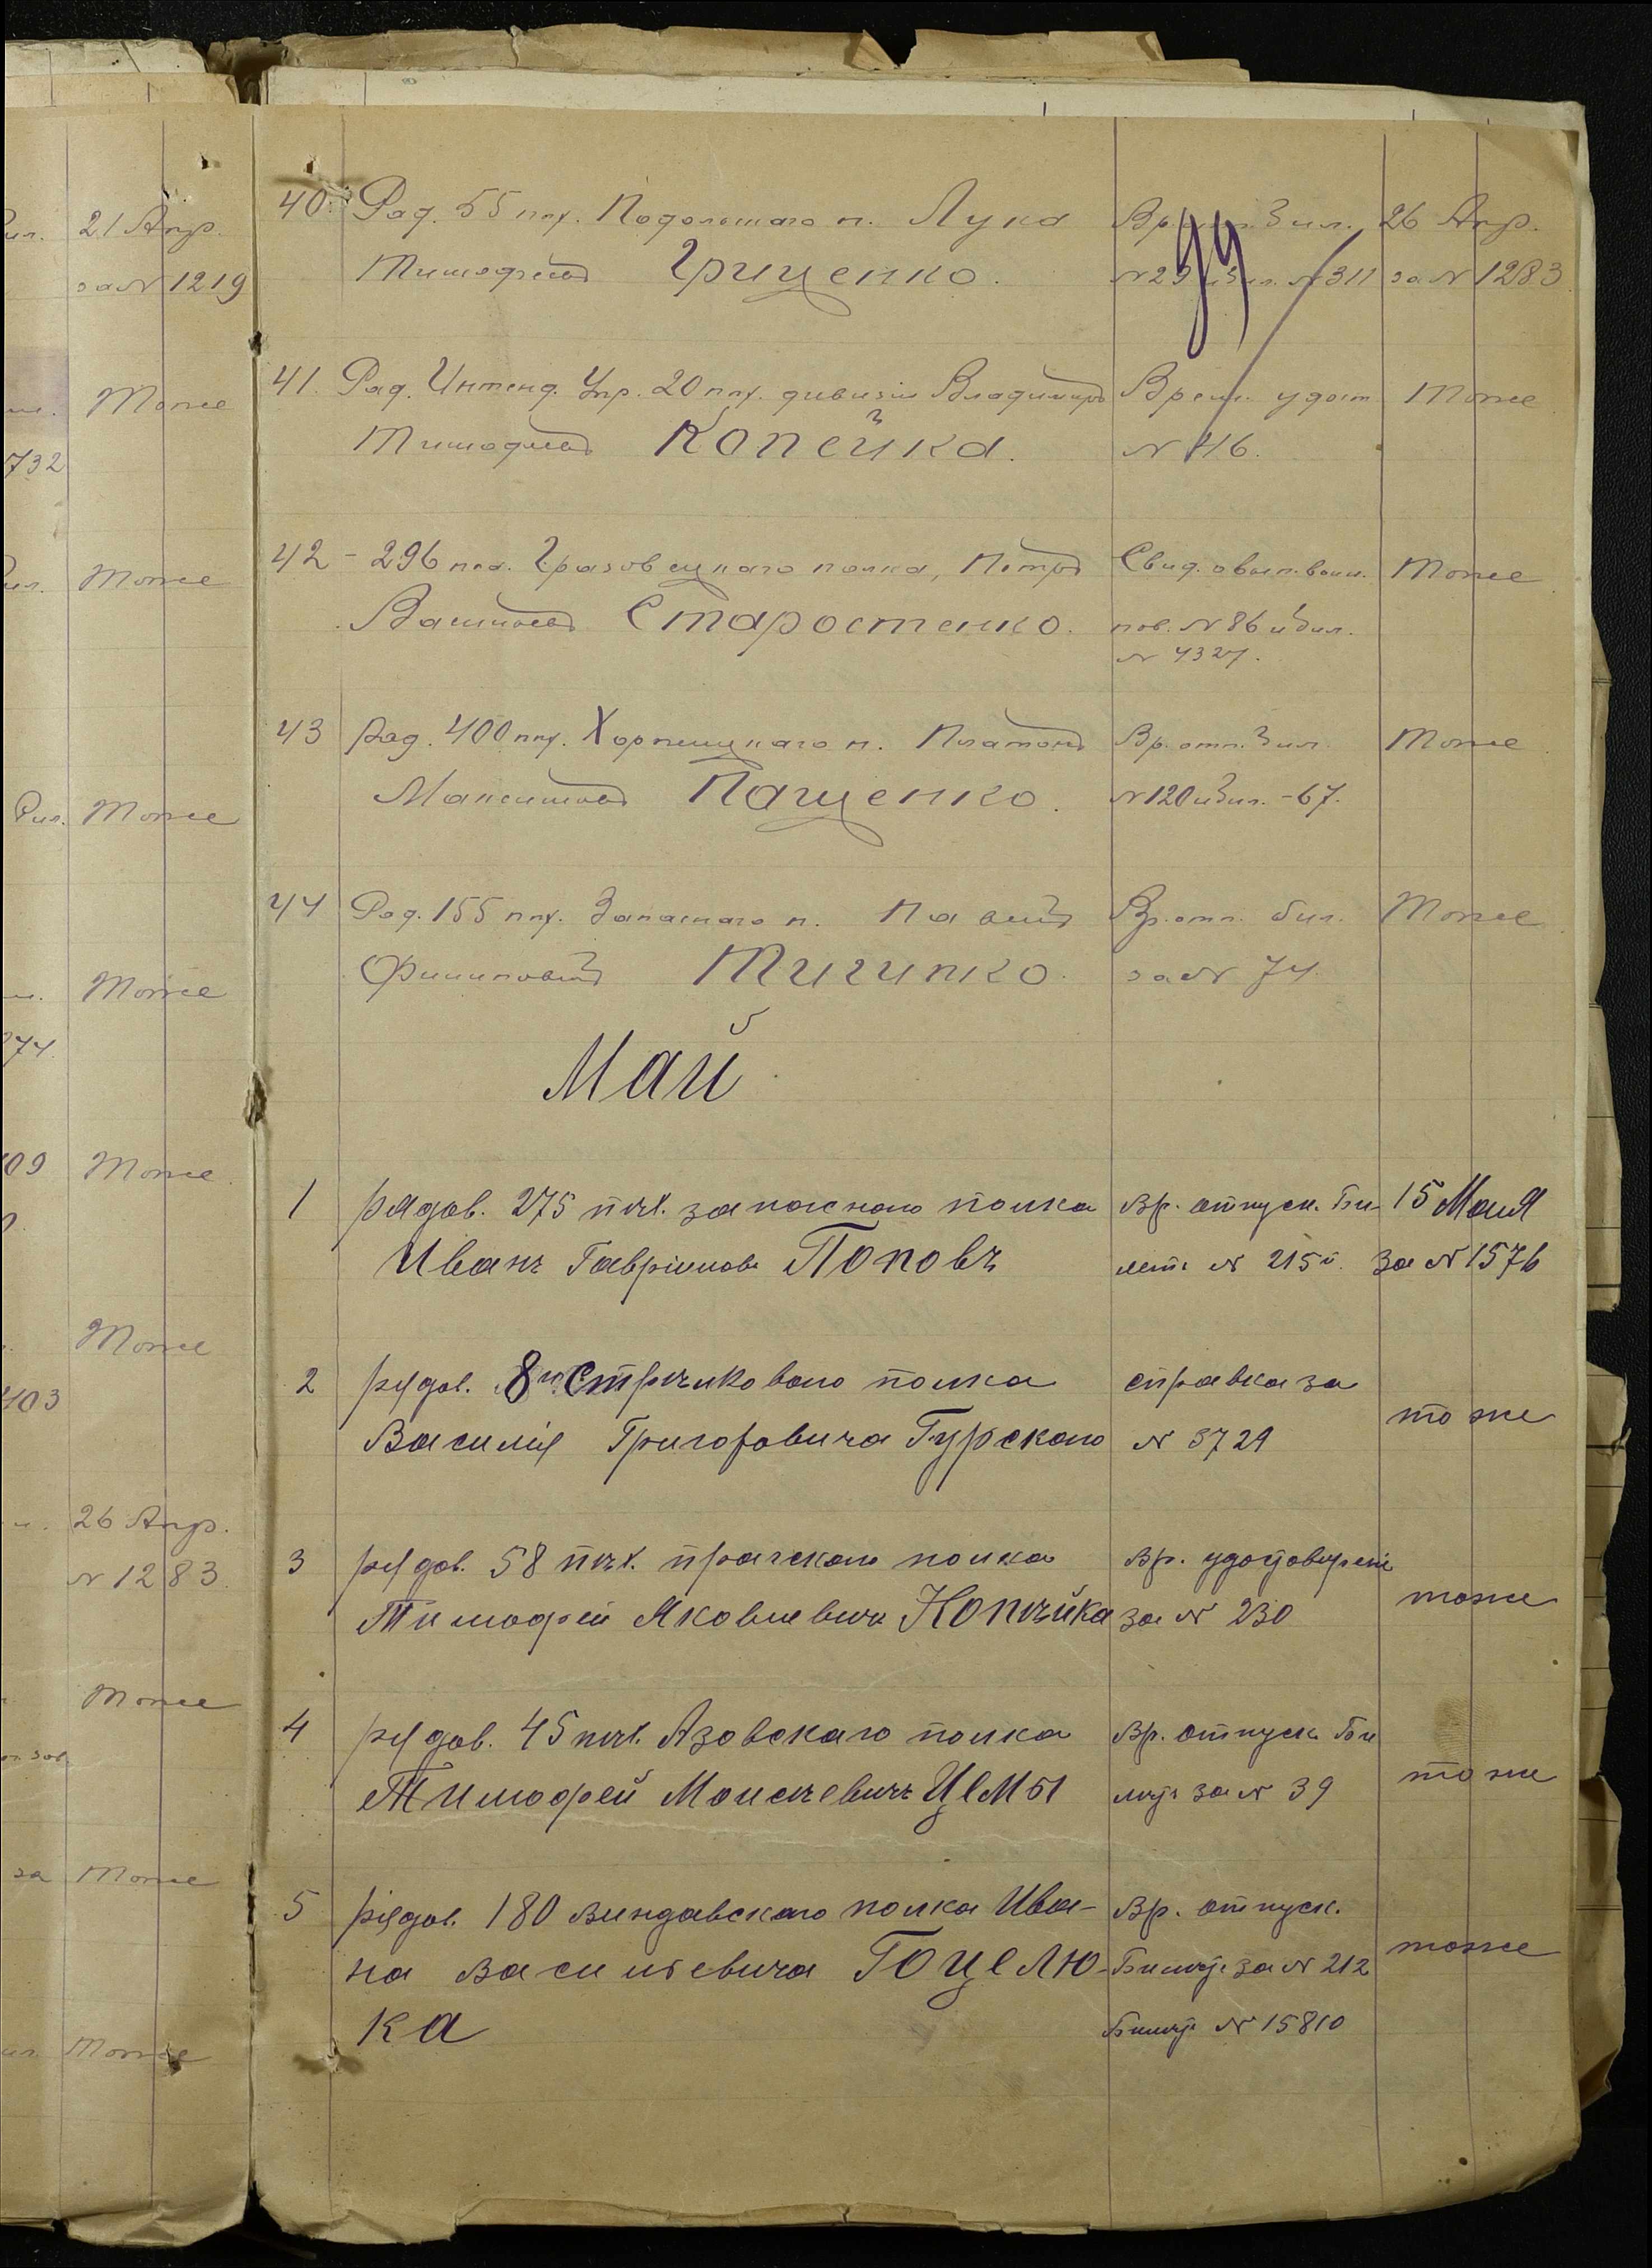 21 Апр.
за N 1219
Тоже
732
Тоже
Тоже
Тоже
74.
09 Тоже
Тоже
403
26 Апр.
N 1283.
Тоже
за Тоже
Тоже
40. Ряд. 55 пѣх. Подольскаго п. Лука
Тимофеевъ Грищенко.
26 Апр.
N 29 N 311
за N 1283.
41. Ряд. Интенд. Упр. 20 пѣх. дивизіи Владимиръ
Тимофеевъ Копейка.
Врем. удост.
N 46.
Тоже
42 - 296 пѣх. Грязовецкаго полка, Петръ
Старостенко.
Свид. о вып. воин.
пов. N 86 и бил.
N 4327.
Тоже
43 Ряд. 400 пѣх. Хортицкаго п. Платонъ
Максимовъ Пащенко.
Вр. отп. бил.
N 120 и бил. - 67.
Тоже
44 Ряд. 155 пѣх. Запаснаго п. Павелъ
Филиповъ Тигипко.
Вр. отп. бил.
за N 74.
Тоже
Май
1 рядов. 275 пѣх. запаснаго полка
Иванъ Гавріиловъ Поповъ
Вр. отпуск. Би-
летъ N 215
15 Мая
за N 1576
2 рядов. 8й Стрѣлковаго полка
Василія Григоровича Гурскаго
справка за
N 3729
тоже
3 рядов. 58 пѣх. прагскаго полка
Тимофей Яковлевичъ Копѣйка
Вр. удостоверені
за N 230
тоже
4 рядов. 45 пѣх. Азовскаго полка
Тимофей Моисѣевичъ Цемы
Вр. отпуск. Би
летъ за N 39
тоже
5 рядов. 180 виндавскаго полка Ива-
на Васильевича Гоцелю-
ка
Вр. отпуск.
Билетъ за N 212
Билетъ N 15810
тоже